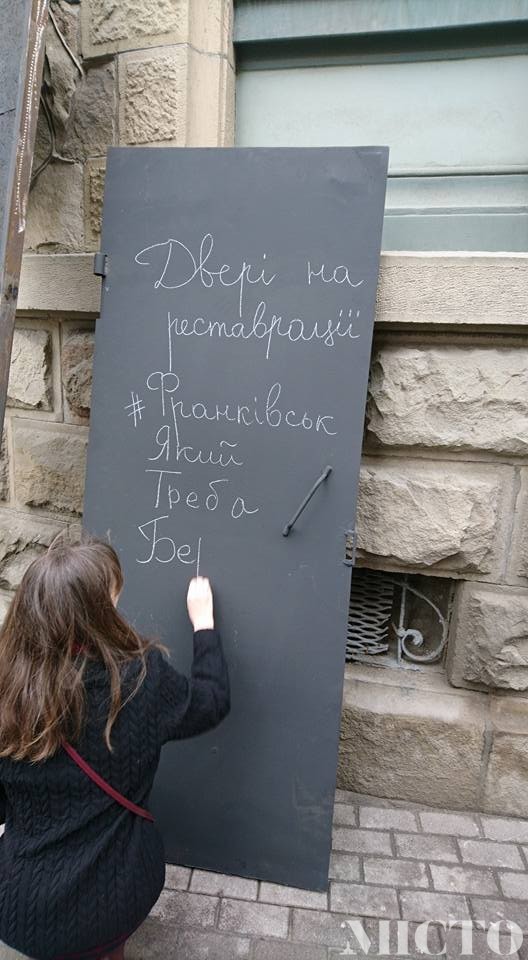 Двері на
реставрації
#Франківськ
Який
Треба
Бер
МІСТО